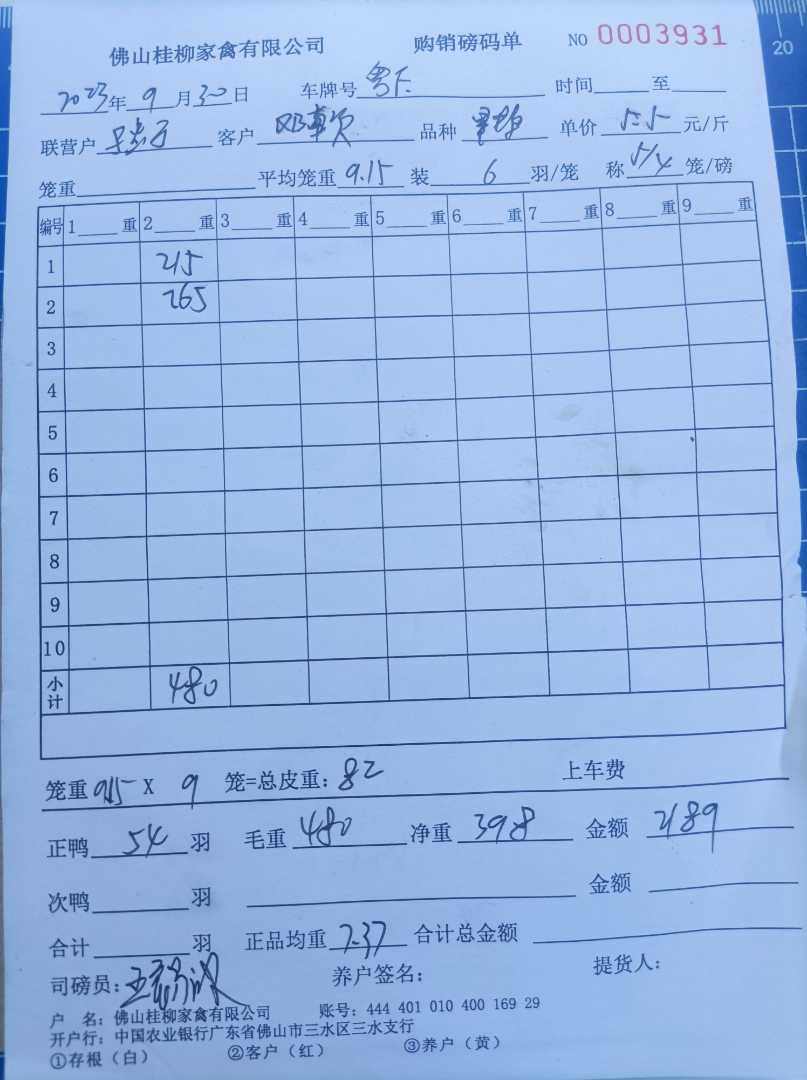 佛山桂柳家禽有限公司 购销磅码单 NO 0003931
2023年9月30日 车牌号 时间 至
联营户 客户 品种 单价 5.5 元/斤
笼重 平均笼重 9.15 装 6 羽/笼 称 5/4 笼/磅
编号 1 重 2 重 3 重 4 重 5 重 6 重 7 重 8 重 9 重
1 215
2 265
3
4
5
6
7
8
9
10
小计 480
笼重 915 X 9 笼=总皮重: 82 上车费
正鸭 54 羽 毛重 480 净重 398 金额 2189
次鸭 羽 金额
合计 羽 正品均重 7.37 合计总金额
司磅员: 养户签名: 提货人:
户 名: 佛山桂柳家禽有限公司 账号: 444 401 010 400 169 29
开户行: 中国农业银行广东省佛山市三水区三水支行
①存根（白） ②客户（红） ③养户（黄）
20